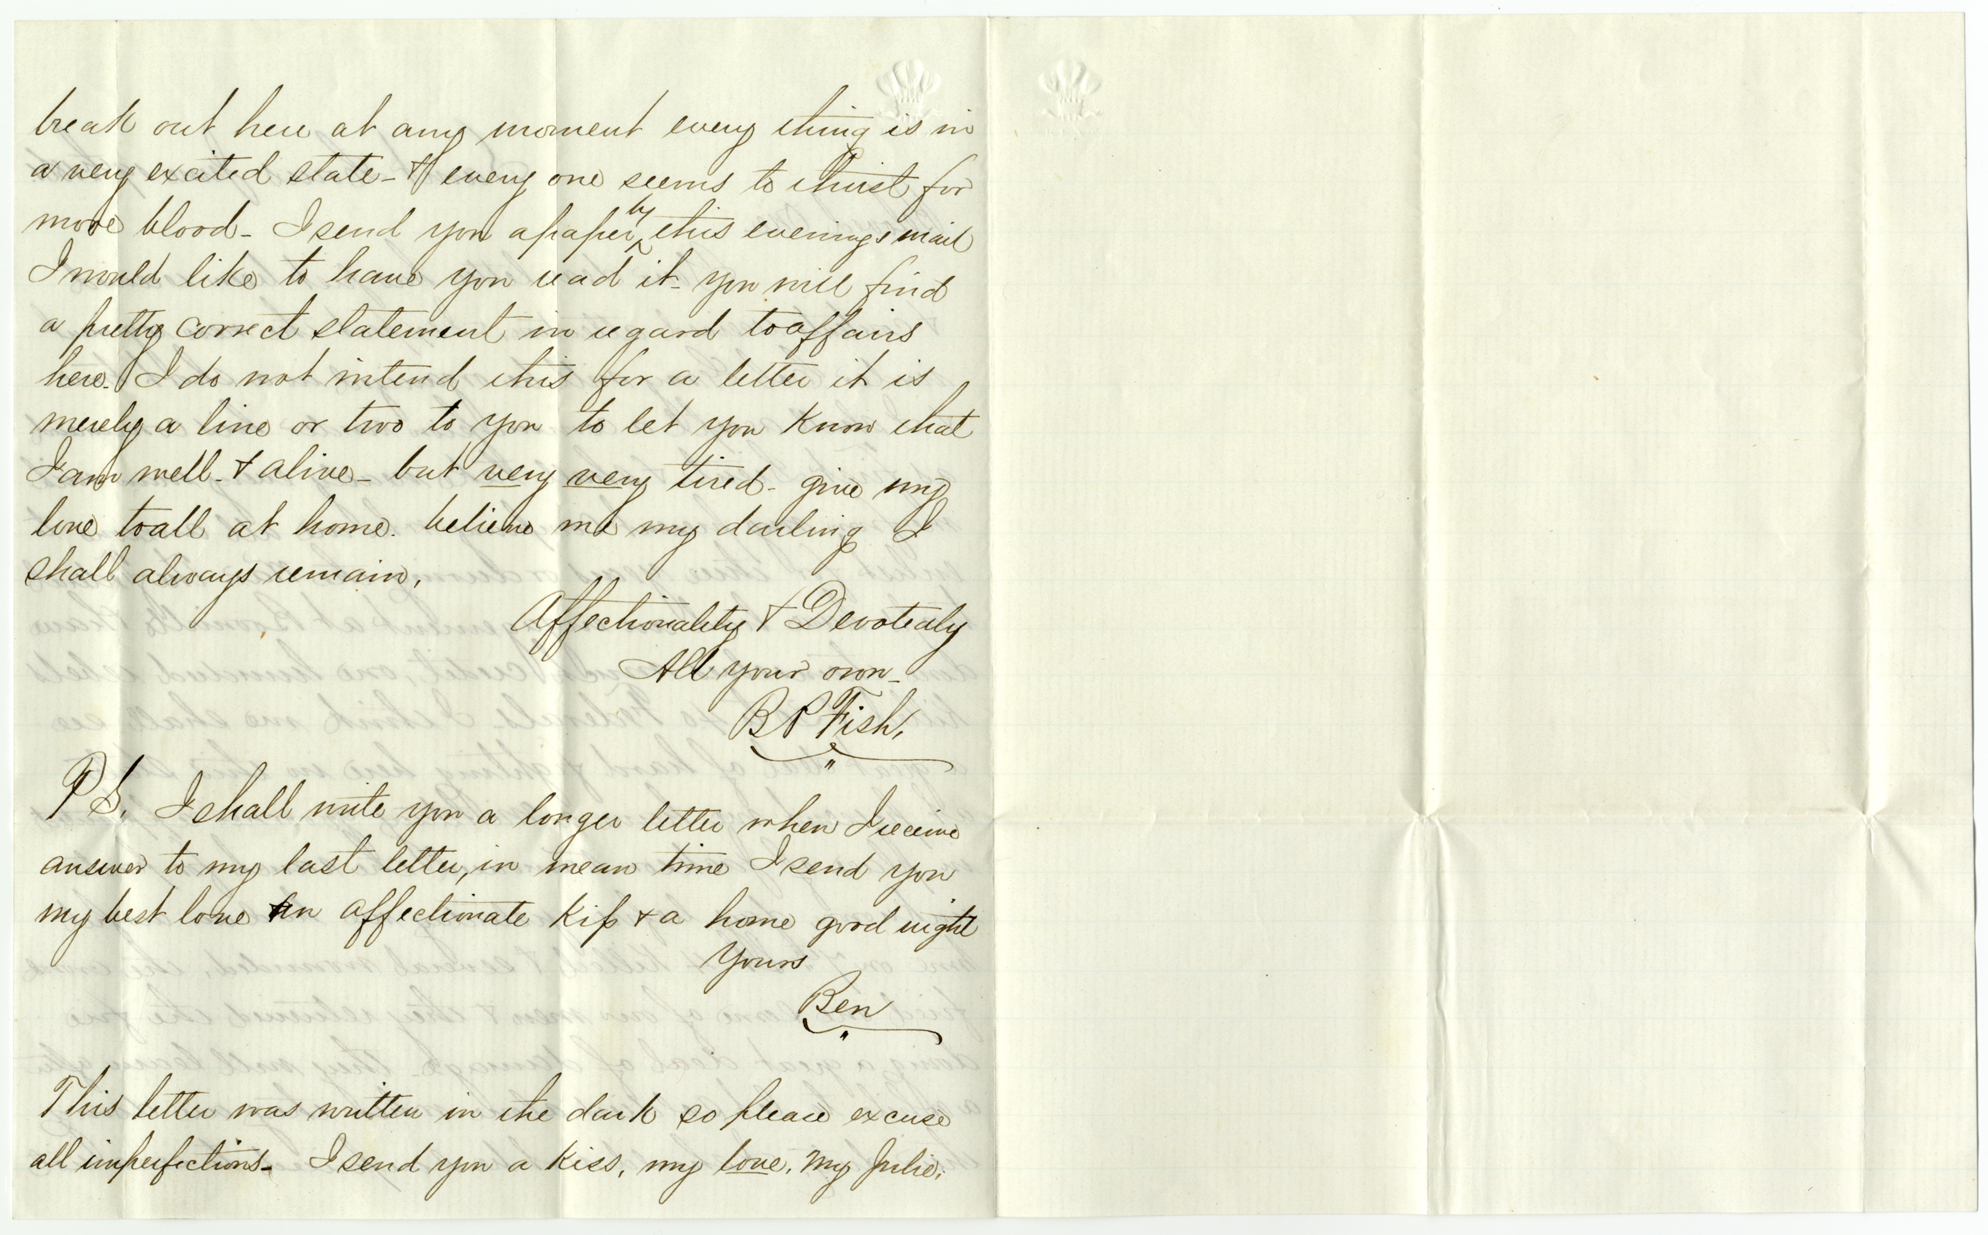 break out here at any moment every thing is in
a very excited state - & every one seems to thirst for
more blood - I send you a paper by this evenings mail
I would like to have you read it - you will find
a pretty correct statement in regard to affairs
here. I do not intend this for a letter it is
merely a line or two to you to let you know that
I am well - & alive - but very very tired - give my
love to all at home. believe me my darling I
shall always remain,
Affectionality & Devotealy
All your own -
B P Fish,
P S. I shall write you a longer letter when I receive
answer to my last letter, in mean time I send you
my best love an affectionate kiss & a home good night
Yours
Ben
This letter was written in the dark so please excuse
all imperfections - I send you a kiss, my love. my Julie.